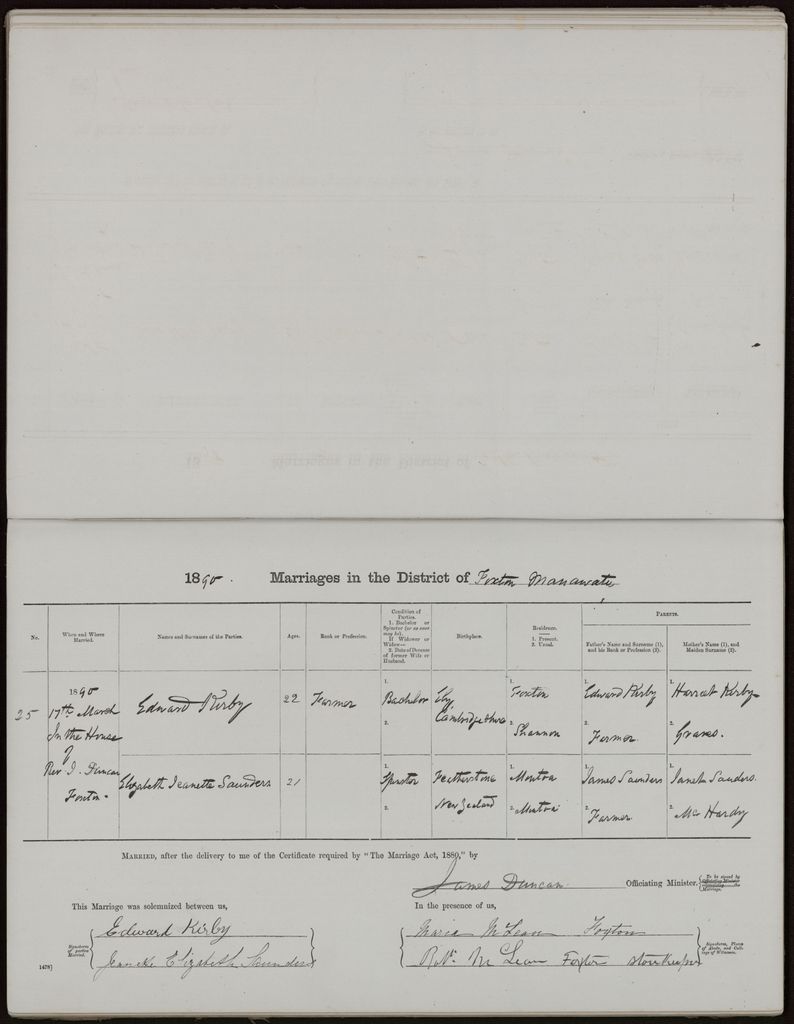 1890. Marriages in the District of Foxton Manawatu
No.
When and Where Married.
Names and Surnames of the Parties.
Ages.
Rank or Profession.
Condition of Parties.
1. Bachelor or Spinster (or as case may be).
If Widower or Widow—
2. Date of Decease of former Wife or Husband.
Birthplace.
Residence.
1. Present.
2. Usual.
PARENTS.
Father's Name and Surname (1), and his Rank or Profession (2).
Mother's Name (1), and Maiden Surname (2).
25
1890
17th March
In the House
of
Rev J. Duncan
Foxton.
Edward Kirby
22
Farmer
1. Bachelor
2.
Ely
Cambridgeshire
1. Foxton
2. Shannon
1. Edward Kirby
2. Farmer.
1. Harriet Kirby
2. Graves.
Elizabeth Jeanette Saunders
21
1. Spinster
2.
Featherstone
New Zealand
1. Moutoa
2. Moutoa
1. James Saunders
2. Farmer.
1. Janet Saunders.
2. McHardy
MARRIED, after the delivery to me of the Certificate required by "The Marriage Act, 1880," by
James Duncan Officiating Minister.
This Marriage was solemnized between us,
Edward Kirby
Elizabeth Saunders
Signatures of parties Married.
In the presence of us,
Maria McLean Foxton
Robt. McLean Foxton Storekeeper
Signatures, Places of Abode, and Callings of Witnesses.
1478]